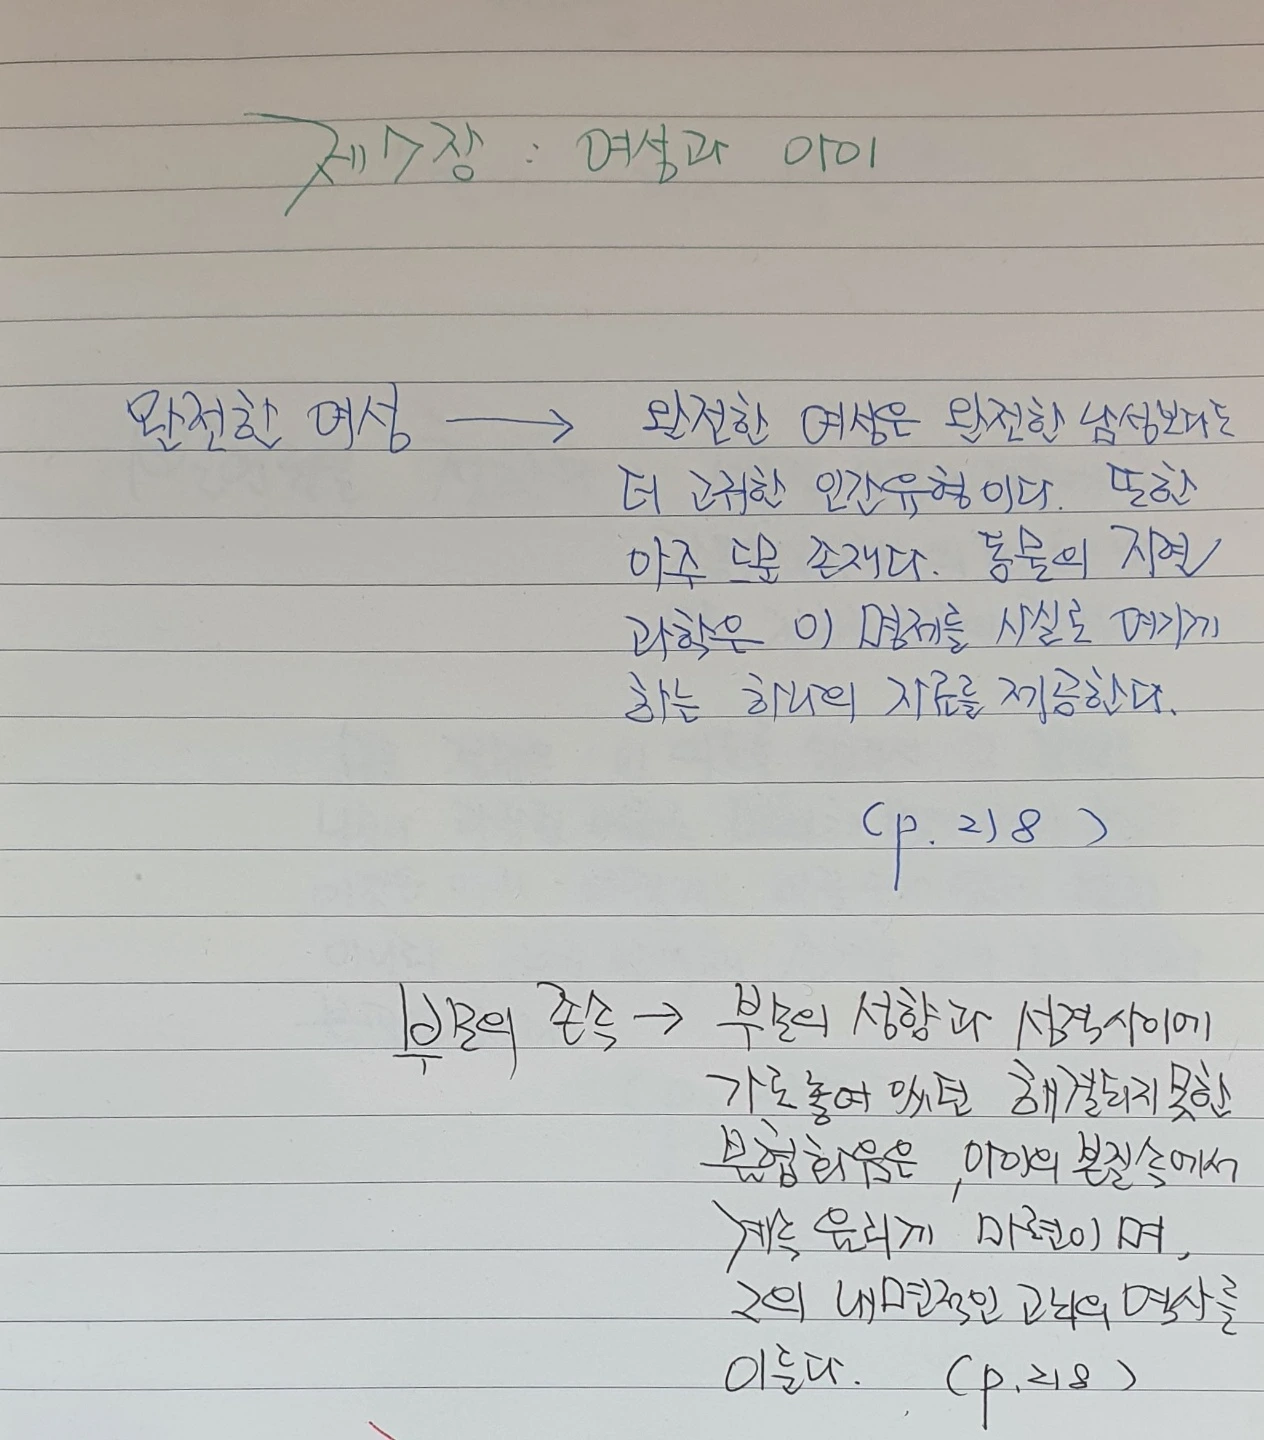 제7장 : 여성과 아이
완전한 여성 → 완전한 여성은 완전한 남성보다도
더 고귀한 인간유형이다. 또한
아주 드문 존재다. 동물의 자연
과학은 이 명제를 사실로 여기게
하는 하나의 자료를 제공한다.
(p. 218)
부모의 존속 → 부모의 성향과 성격사이에
가로놓여 있던 해결되지못한
불협화음은, 아이의 본질속에서
계속 울리게 마련이며,
그의 내면적인 고뇌의 역사를
이룬다. (p. 218)